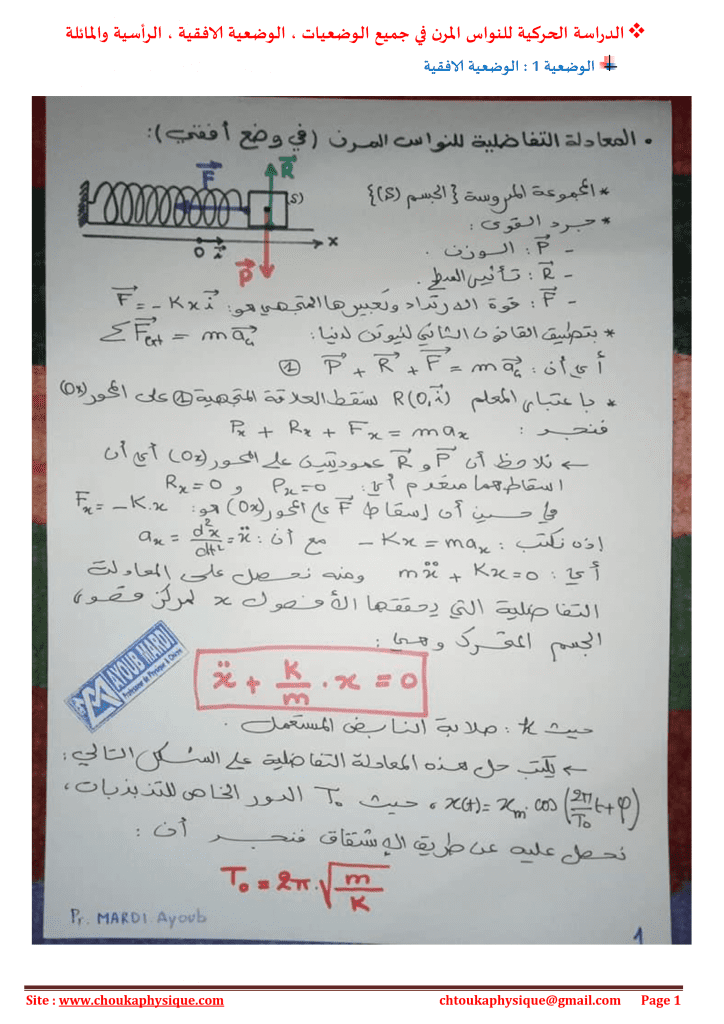 ❖ الدراسة الحركية للنواس المرن في جميع الوضعيات ، الوضعية الافقية ، الرأسية والمائلة
الوضعية 1 : الوضعية الافقية
• المعادلة التفاضلية للنواس المرن (في وضع أفقي):
* المجموعة المدروسة {الجسم (S)}
* جرد القوى :
- P⃗ : الوزن .
- R⃗ : تأثير السطح .
- F⃗ : قوة الارتداد وتعبيرها المتجهي هو: F⃗ = - K x i⃗
F⃗
R⃗
(S)
P⃗
O i⃗ x
* بتطبيق القانون الثاني لنيوتن لدينا: ΣF⃗ext = m a⃗G
أي أن : P⃗ + R⃗ + F⃗ = m a⃗G ①
* باعتبار المعلم R(O,i⃗) نسقط العلاقة المتجهية ① على المحور (Ox)
فنجد : Px + Rx + Fx = m ax
← نلاحظ أن P⃗ و R⃗ عموديتين على المحور (Ox) أي أن
اسقاطهما منعدم أي: Px = 0 و Rx = 0
في حسين أن إسقاط F⃗ على المحور (Ox) هو: Fx = - K.x
إذن نكتب : - Kx = max مع أن : ax = d²x/dt² = ẍ
أي : mẍ + Kx = 0 ومنه نحصل على المعادلة
التفاضلية التي يحققها الأفصول x لمركز قصور
الجسم المتحرك وهي :
ẍ + k/m . x = 0
AYOUB MARDI
Professeur de Physique & Chimie
حيث k : صلابة النابض المستعمل .
← يكتب حل هذه المعادلة التفاضلية على الشكل التالي :
x(t) = xm. cos (2π/T₀ t + φ) ، حيث T₀ الدور الخاص للتذبذبات ،
نحصل عليه عن طريق الإشتقاق فنجد أن :
T₀ = 2π . √(m/K)
Pr. MARDI Ayoub
1
Site : www.choukaphysique.com chtoukaphysique@gmail.com Page 1